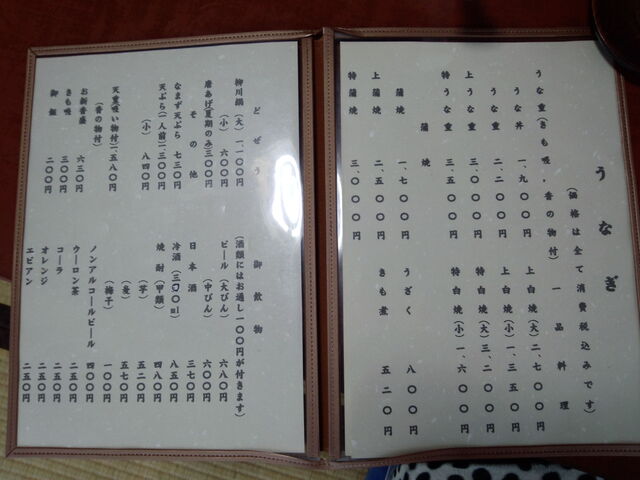 うなぎ
(価格は全て消費税込みです)
うな重(きも吸・香の物付)
うな丼 一、九〇〇円
うな重 二、二〇〇円
上うな重 三、〇〇〇円
特うな重 三、五〇〇円
蒲焼
蒲焼 一、七〇〇円
上蒲焼 二、五〇〇円
特蒲焼 三、〇〇〇円
一品料理
上白焼(大) 二、七〇〇円
上白焼(小) 一、三五〇円
特白焼(大) 三、二〇〇円
特白焼(小) 一、六〇〇円
うざく 八〇〇円
きも煮 五二〇円
どぜう
柳川鍋(大) 一、一〇〇円
(小) 六〇〇円
唐あげ(夏期のみ) 三〇〇円
その他
なまず天ぷら 七三〇円
天ぷら(一人前) 一、三〇〇円
(小) 八四〇円
天重(吸い物付) 一、五八〇円
(香の物付)
お新香盛 六三〇円
きも吸 三〇〇円
御飯 二〇〇円
御飲物
(酒類にはお通し一〇〇円が付きます)
ビール(大びん) 六八〇円
(中びん) 六〇〇円
日本酒 三七〇円
冷酒(三〇〇ml) 八五〇円
焼酎(甲類) 四八〇円
(芋) 五二〇円
(麦) 五七〇円
(梅干) 一〇〇円
ノンアルコールビール 四〇〇円
ウーロン茶 二五〇円
コーラ 二五〇円
オレンジ 二五〇円
エビアン 二五〇円